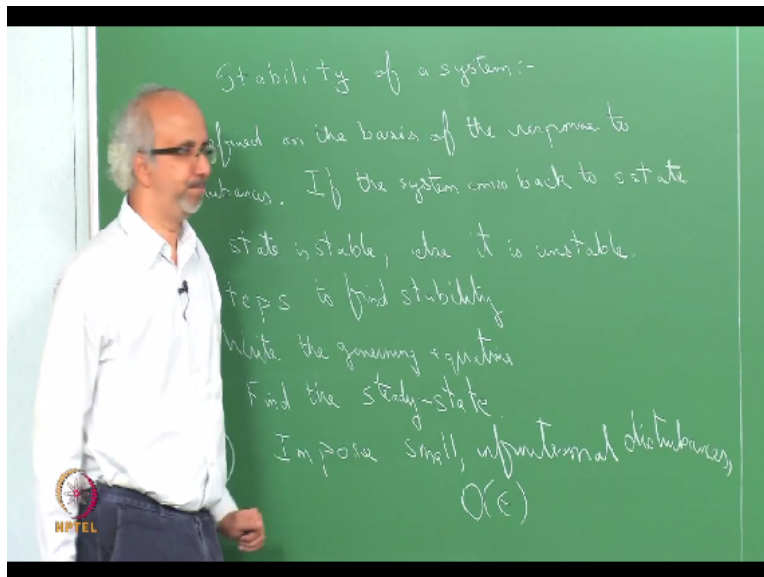 Stability of a system:-
fined on the basis of the response to
urbances. If the system comes back to sstate
state is stable, else it is unstable.
teps to find stability
Write the governing equations
Find the steady-state
) Impose small, infinitesimal disturbances,
O(ϵ)
NPTEL